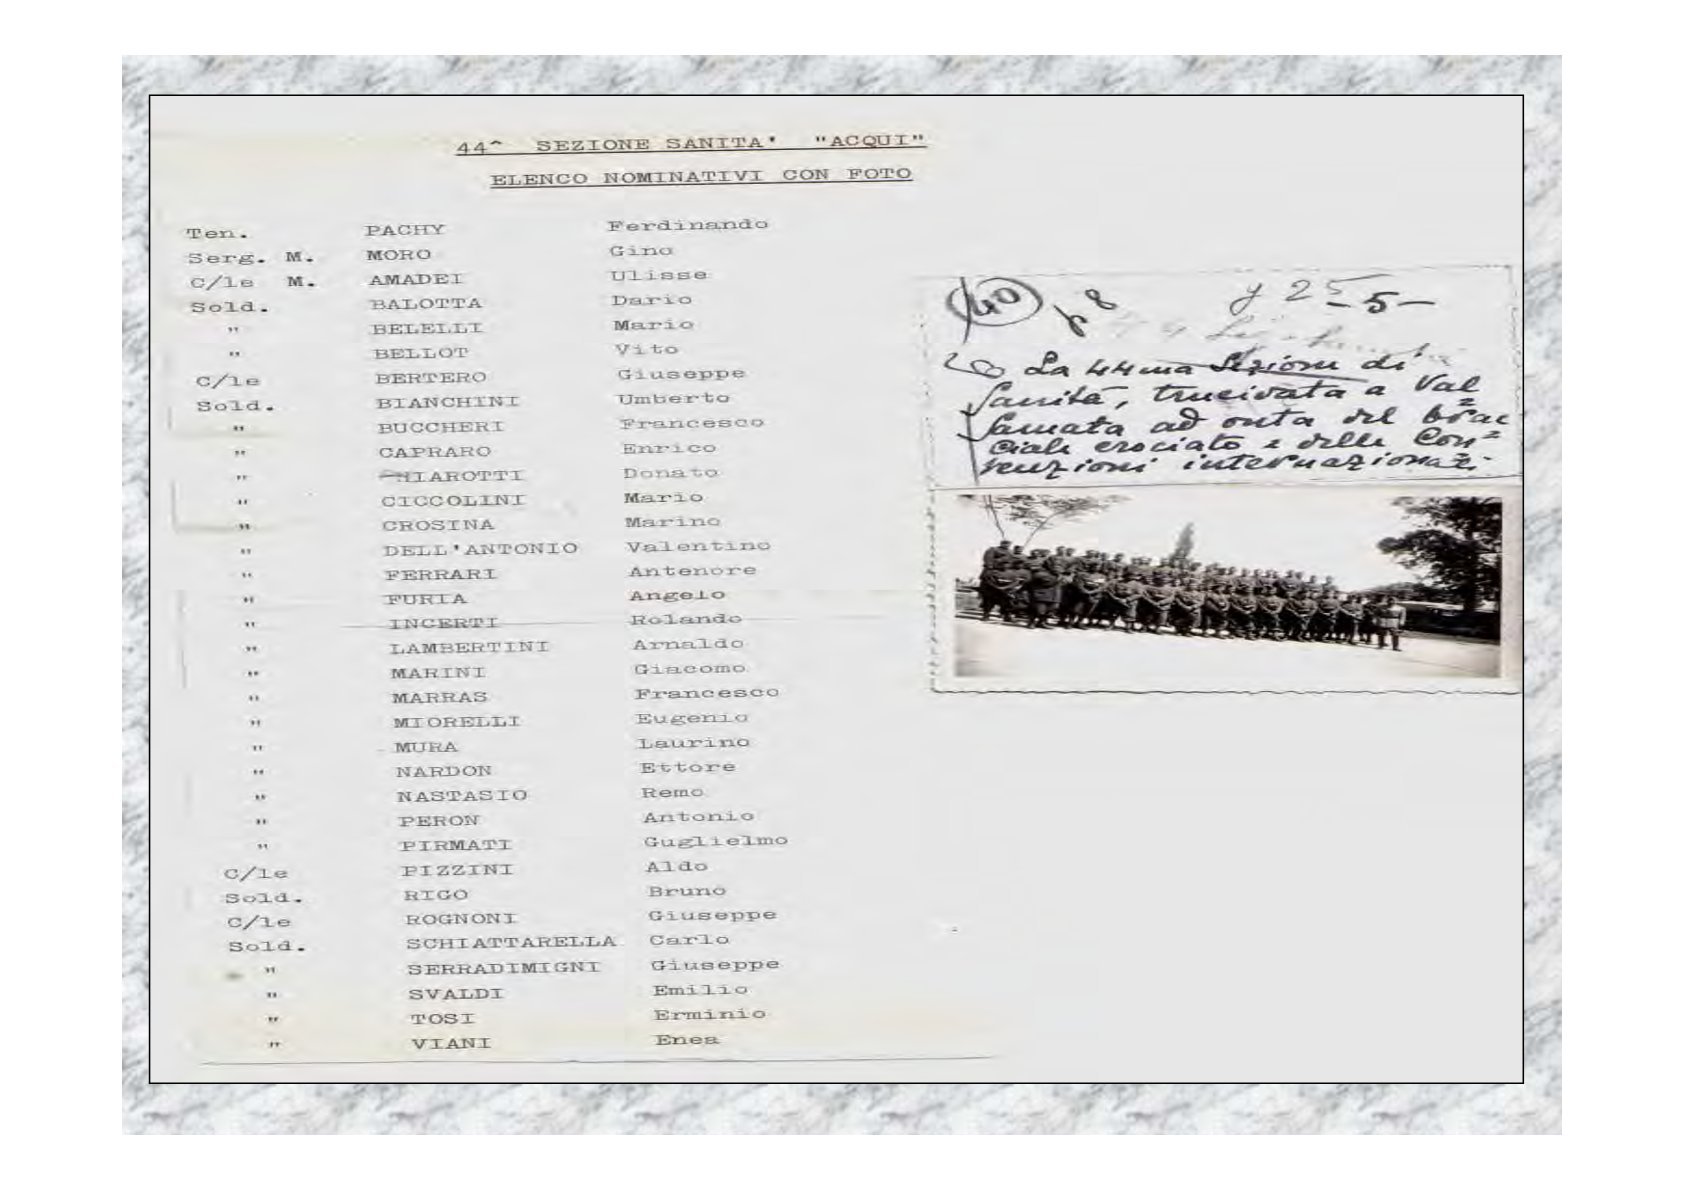 44^ SEZIONE SANITA' "ACQUI"
ELENCO NOMINATIVI CON FOTO
Ten. PACHY Ferdinando
Serg. M. MORO Gino
C/le M. AMADEI Ulisse
Sold. BALOTTA Dario
" BELELLI Mario
" BELLOT Vito
C/le BERTERO Giuseppe
Sold. BIANCHINI Umberto
" BUCCHERI Francesco
" CAPRARO Enrico
" CHIAROTTI Donato
" CICCOLINI Mario
" CROSINA Marino
" DELL'ANTONIO Valentino
" FERRARI Antenore
" FURIA Angelo
" INCERTI Rolando
" LAMBERTINI Arnaldo
" MARINI Giacomo
" MARRAS Francesco
" MIORELLI Eugenio
" MURA Laurino
" NARDON Ettore
" NASTASIO Remo
" PERON Antonio
" PIRMATI Guglielmo
C/le PIZZINI Aldo
Sold. RIGO Bruno
C/le ROGNONI Giuseppe
Sold. SCHIATTARELLA Carlo
" SERRADIMIGNI Giuseppe
" SVALDI Emilio
" TOSI Erminio
" VIANI Enea
40 p 8 y 25 -5-
La 44ma Sezione di
Sanità, trucidata a Val
Samata ad onta del brac
ciale crociato e delle Con=
venzioni internazionali.